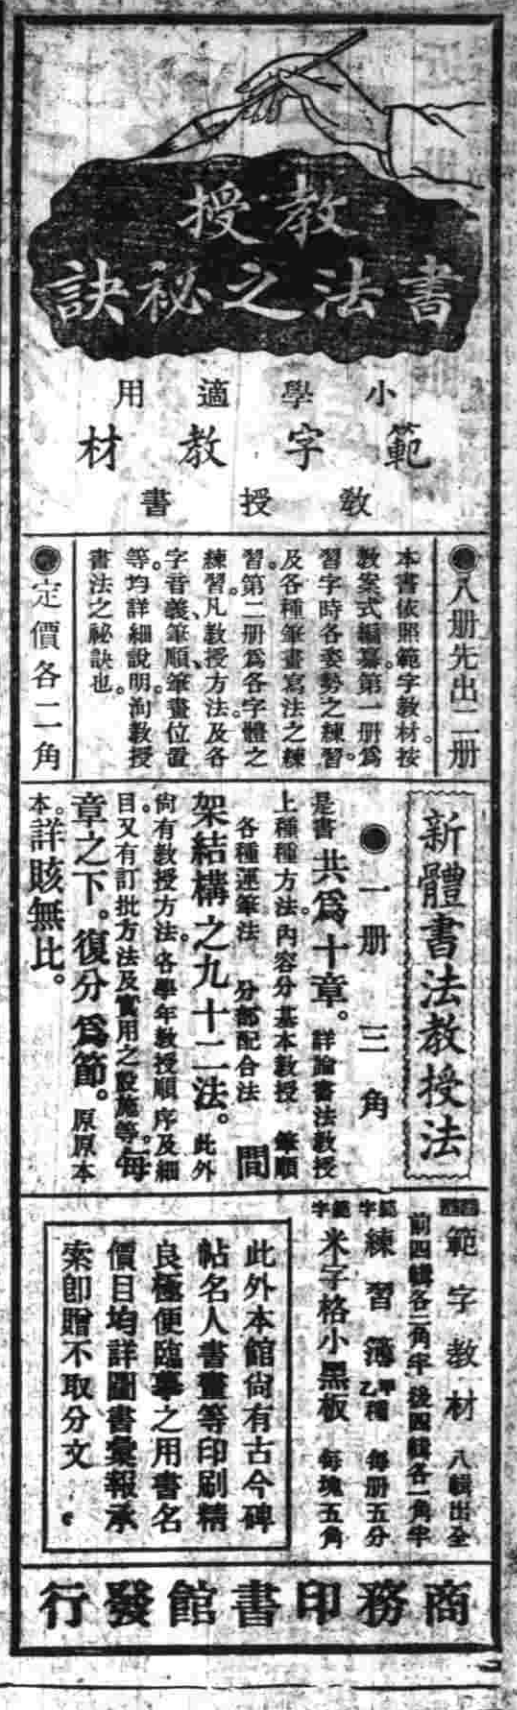 教授
書法之祕訣
小學適用
範字教材
教授書
八册先出二册
本書依照範字教材。按
教案式編纂。第一册爲
習字時各姿勢之練習。
及各種筆畫寫法之練
習。第二册爲各字體之
練習。凡教授方法。及各
字音義、筆順、筆畫位置
等。均詳細說明。洵教授
書法之祕訣也。
定價各二角
新體書法教授法
一册 三角
是書共爲十章。詳論書法教授
上種種方法。內容分基本教授 筆順
各種運筆法 分部配合法 間
架結構之九十二法。此外
尙有教授方法。各學年教授順序及細
目。又有訂批方法及實用之設施等。每
章之下。復分爲節。原原本
本。詳賅無比。
範字教材 八輯出全
前四輯各二角半 後四輯各一角半
範字練習簿 甲種乙種 每册五分
範字米字格小黑板 每塊五角
此外本館尙有古今碑
帖名人書畫等印刷精
良極便臨摹之用書名
價目均詳圖書彙報承
索卽贈不取分文
商務印書館發行